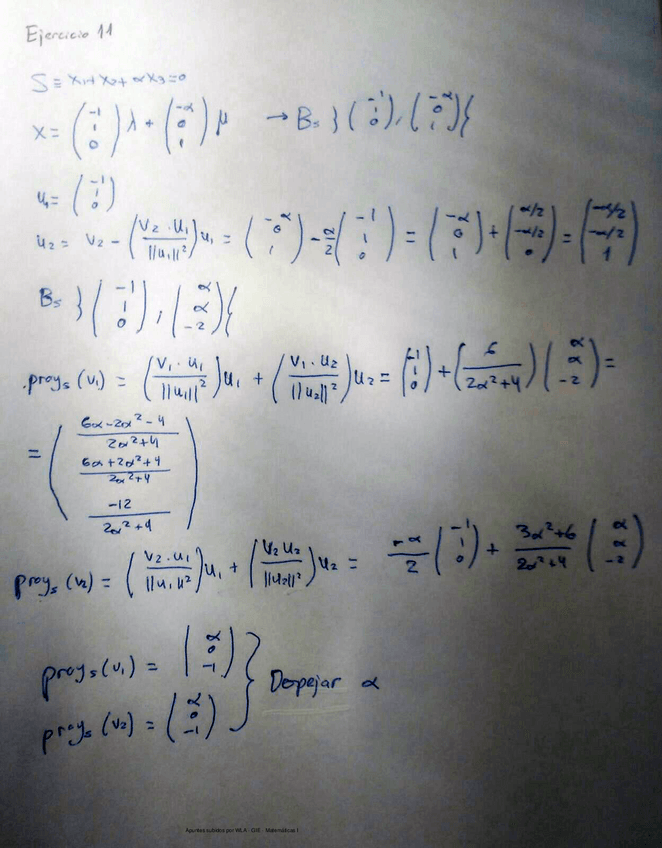 Ejercicio 11
S ≡ x₁+x₂+αx₃=0
x = (-1 1 0) λ + (-α 0 1) μ → Bs }(-1 1 0), (-α 0 1){
u₁ = (-1 1 0)
u₂ = v₂ - (v₂·u₁ / ||u₁||²) u₁ = (-α 0 1) - α/2 (-1 1 0) = (-α 0 1) + (α/2 -α/2 0) = (-α/2 -α/2 1)
Bs }(-1 1 0), (α α -2){
.proys (v₁) = (v₁·u₁ / ||u₁||²) u₁ + (v₁·u₂ / ||u₂||²) u₂ = (-1 1 0) + (6 / 2α²+4) (α α -2) =
= (6α-2α²-4 / 2α²+4 6α+2α²+4 / 2α²+4 -12 / 2α²+4)
proys (v₂) = (v₂·u₁ / ||u₁||²) u₁ + (v₂ u₂ / ||u₂||²) u₂ = -α/2 (-1 1 0) + 3α²+6 / 2α²+4 (α α -2)
proys (v₁) = (α 0 -1)
proys (v₂) = (α 0 -1) } Depejar α
Apuntes subidos por WILA - GIE - Matemáticas I